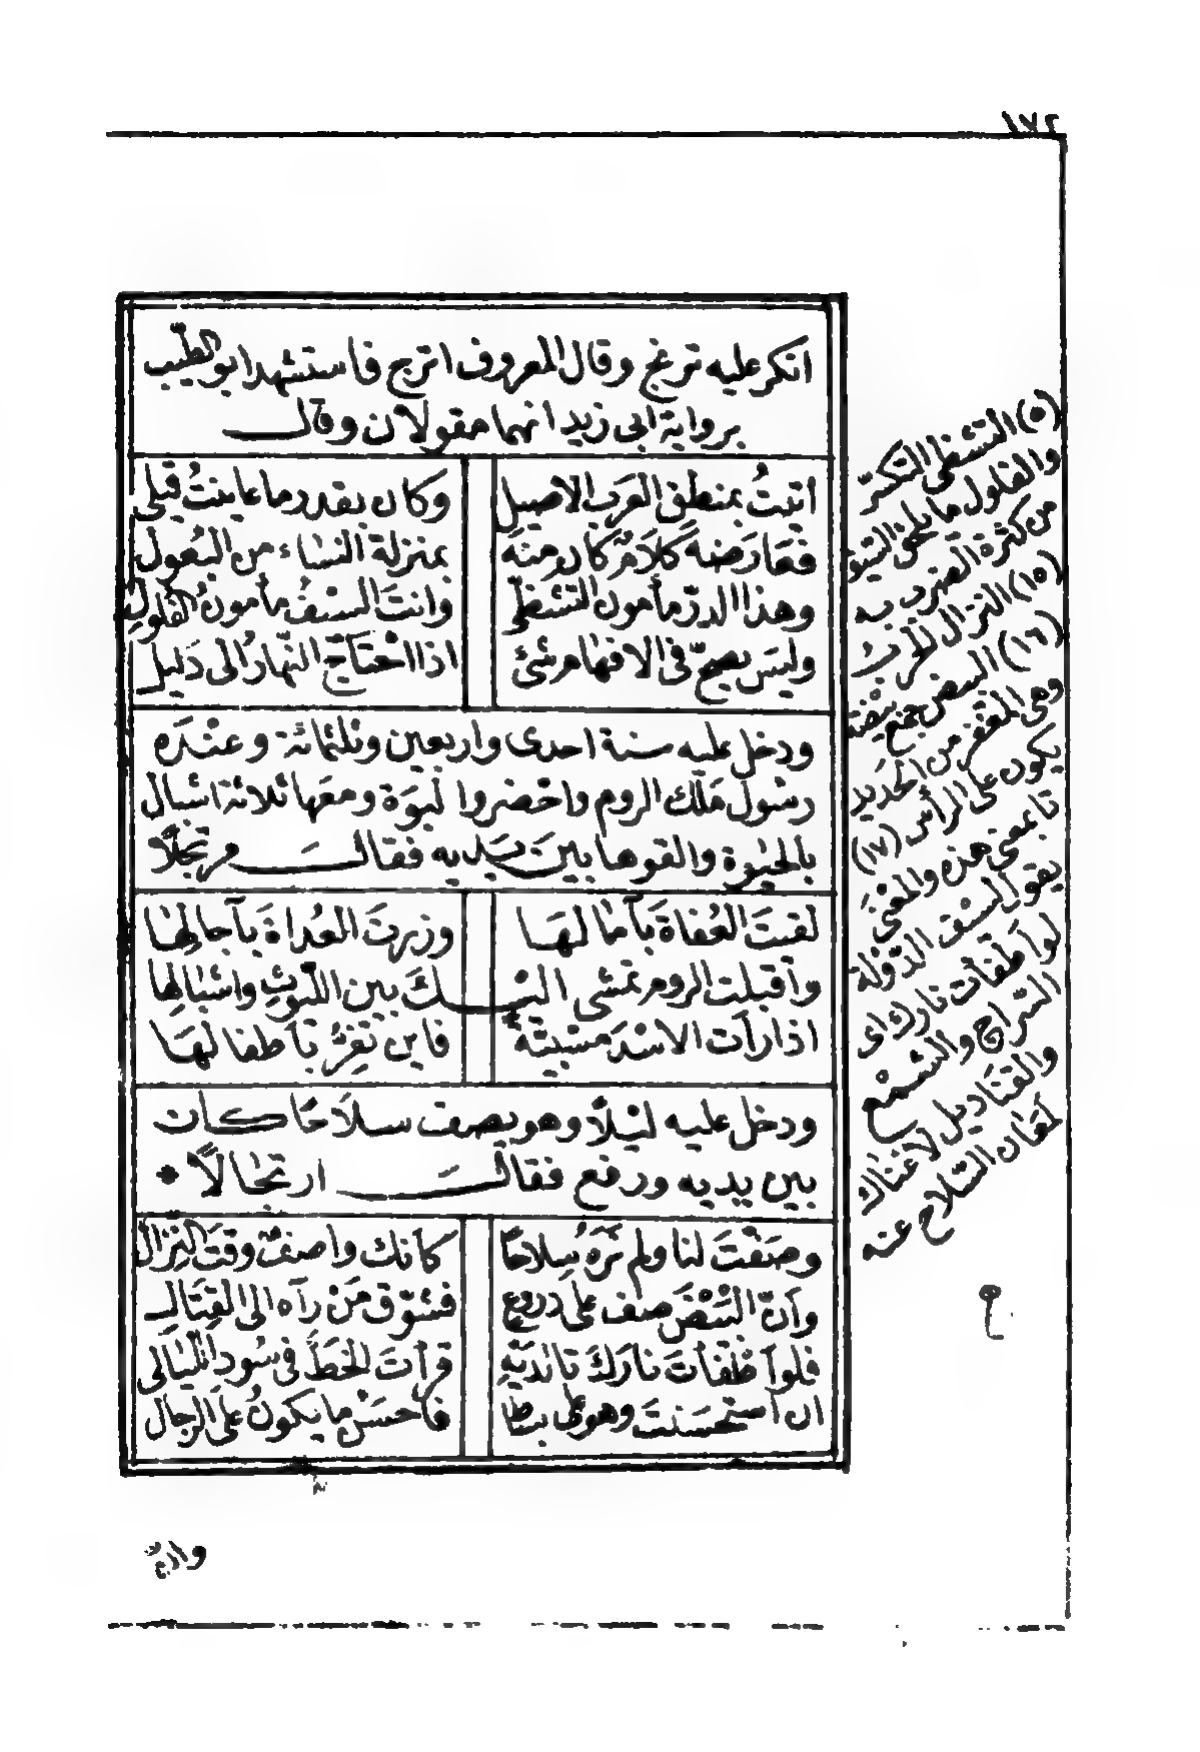 ١٧٢
انكر عليه ترنج وقال المعروف اترج فاستشهد ابو الطيب
برواية ابى زيد انهما مقولان وقال
اتيتُ بمنطق العَرَب الاصيل وكان بقدر ما عاينتُ قيلى
فعَارَضَه كلَامٌ كان منه بمنزلة النساء من البُعول
وهذا الدرّ مأمون التشظّى وانتَ السَيْفُ مأمونُ الفلولِ
وليسَ يصحّ فى الافهام شئ اذا احْتَاجَ النّهارُ الى دَليل
ودخل عليه سنة احدى واربعين وثلثمائة وعنْدَه
رسُول مَلك الروم واحْضروا لَبوَة ومعَها ثلاثة اشبال
بالحيٰوة والقوها بين يَديه فقالَ مرتجَلًا
لقيتَ العُفاةَ بآمالهَا وزرتَ العُداةَ بآجالِهَا
واَقبلت الروم تمشى اليكَ بين اللّيوثِ واشبَالِها
اذا رأت الاسْدَ مَسْبيّةً فاين تفِرُّ بأطفالهَا
ودخل عليه ليْلًا وهو يصف سلَاحًا كان
بين يديه ورفع فقالَ ارتجالًا *
وصَفْتَ لنا ولم نَرَهُ سِلاحًا كانك واصفٌ وقتَ النِزال
وأنّ البَيْضَ صف على دروع فشوّقَ مَنْ رآه الى القِتَالِ
فلو اَطْفأتَ نارَكَ تا لديْهِ قرأتَ الخَطَّ فى سُود الليَالى
ان استحسَنتَ وهو على بساط فاَحسَنْ ما يكونُ على الرجال
(٥) التشظى التكسّر
والفلول ما يلحق السيف
من كثرة الضرب به
(١٥) النزال الحرب
(١٦) البيض جمع بيضة
وهى المغفر من الحَديد
يكون على الرأس (١٧)
تا بمعنى هذه والمعْنى
يقول لسيف الدّوْلة
لو اَطفأت نارك اى
السّراج والشمْع
والقنَاديل لاغنَاك
لمعَان السّلاح عنه